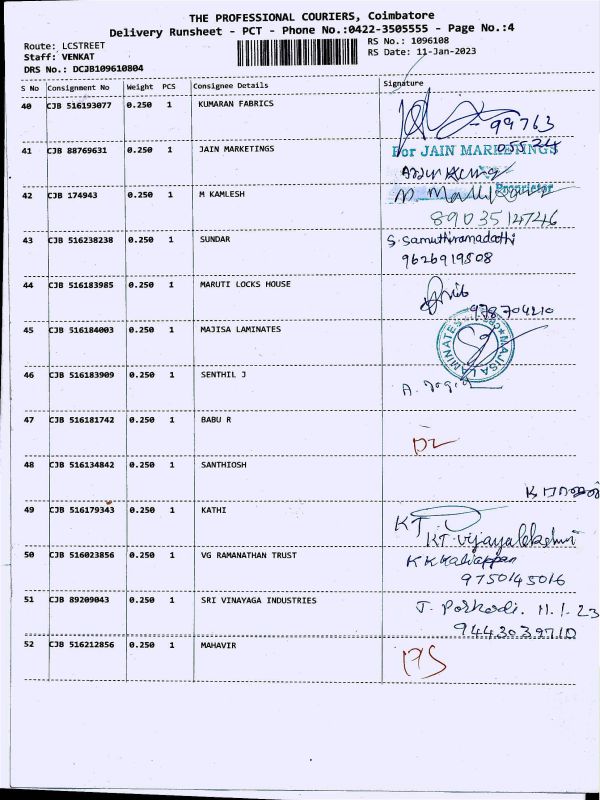 THE PROFESSIONAL COURIERS, Coimbatore
Delivery Runsheet - PCT - Phone No.:0422-3505555 - Page No.:4
Route: LCSTREET
RS No.: 1096108
Staff: VENKAT
RS Date: 11-Jan-2023
DRS No.: DCJB109610804
S No Consignment No Weight PCS Consignee Details Signature
40 CJB 516193077 0.250 1 KUMARAN FABRICS
99763
05524
41 CJB 88769631 0.250 1 JAIN MARKETINGS For JAIN MARKETINGS
Proprietor
42 CJB 174943 0.250 1 M KAMLESH
8903514746
43 CJB 516238238 0.250 1 SUNDAR S. Samuthiramadathi
9626919508
44 CJB 516183985 0.250 1 MARUTI LOCKS HOUSE
978704210
45 CJB 516184003 0.250 1 MAJISA LAMINATES MAJISA LAMINATES
46 CJB 516183909 0.250 1 SENTHIL J
47 CJB 516181742 0.250 1 BABU R
DL
48 CJB 516134842 0.250 1 SANTHIOSH
49 CJB 516179343 0.250 1 KATHI KT.
KT. Vijayalekshmi
50 CJB 516023856 0.250 1 VG RAMANATHAN TRUST K K Kaliappan
9750145016
51 CJB 89209043 0.250 1 SRI VINAYAGA INDUSTRIES J. Porkodi. 11.1.23
9443039710
52 CJB 516212856 0.250 1 MAHAVIR